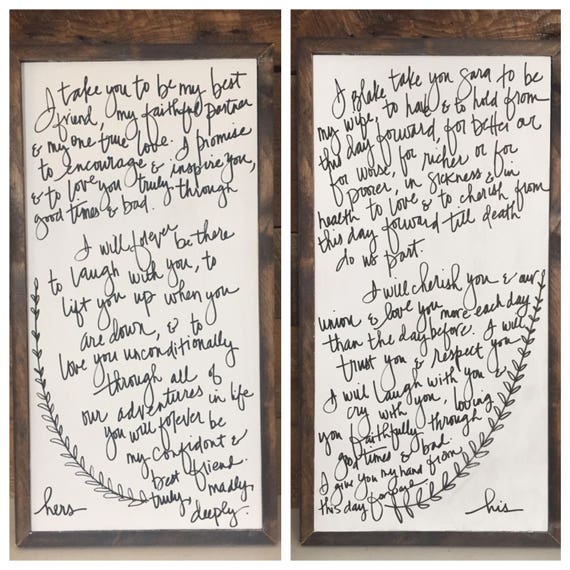 I take you to be my best
friend, my faithful partner
& my one true love. I promise
to encourage & inspire you,
& to love you truly through
good times & bad.
I will forever be there
to laugh with you, to
lift you up when you
are down, & to
love you unconditionally
through all of
our adventures in life
you will forever be
my confidont &
best friend.
truly, madly,
deeply.
hers
I Blake take you Sara to be
my wife, to have & to hold from
this day forward, for better or
for worse, for richer or for
poorer, in sickness & in
health to love & to cherish from
this day forward till death
do us part.
I will cherish you & our
union & love you more each day
than the day before. I will
trust you & respect you
I will laugh with you &
cry with you, loving
you faithfully through
good times & bad.
I give you my hand from
this day
his